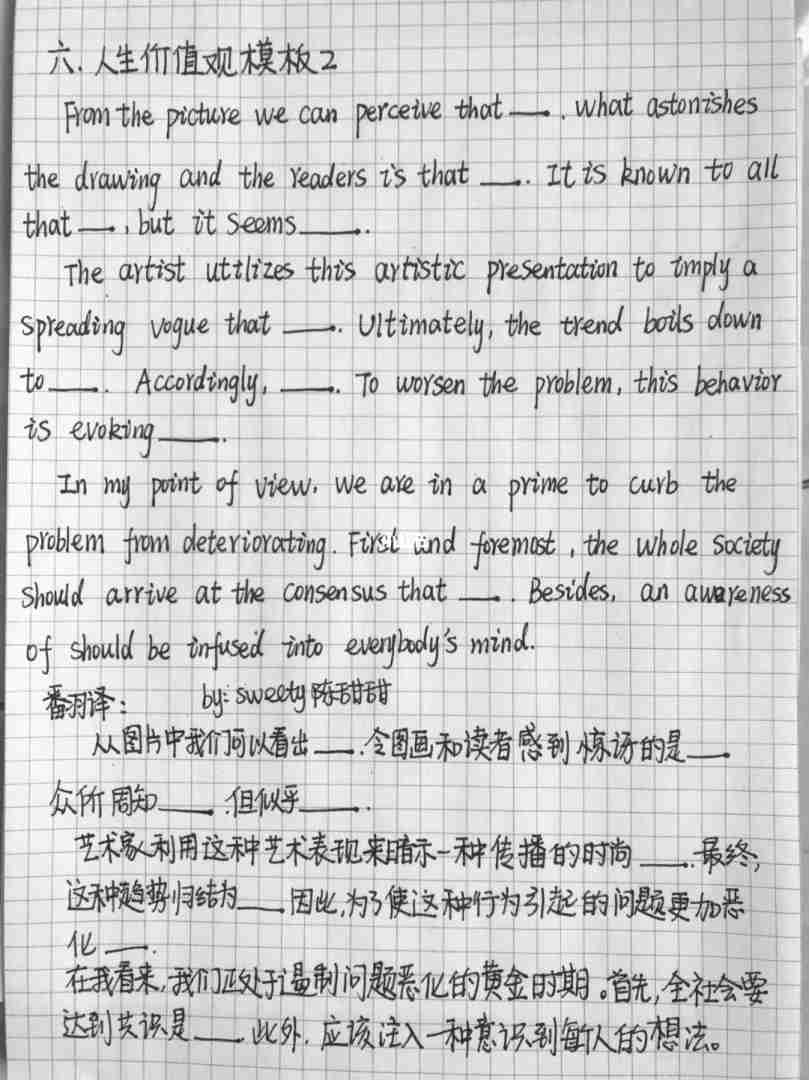 六.人生价值观模板2
From the picture we can perceive that ___. what astonishes
the drawing and the readers is that ___. It is known to all
that ___, but it seems ___.
The artist utilizes this artistic presentation to imply a
spreading vogue that ___. Ultimately, the trend boils down
to ___. Accordingly, ___. To worsen the problem, this behavior
is evoking ___.
In my point of view, we are in a prime to curb the
problem from deteriorating. First and foremost, the whole society
should arrive at the consensus that ___. Besides, an awareness
of should be infused into everybody's mind.
翻译: by: sweety 陈甜甜
从图片中我们可以看出 ___. 令图画和读者感到惊讶的是 ___
众所周知 ___ 但似乎 ___.
艺术家利用这种艺术表现来暗示一种传播的时尚 ___. 最终,
这种趋势归结为 ___ 因此,为了使这种行为引起的问题更加恶
化 ___.
在我看来,我们正处于遏制问题恶化的黄金时期。首先,全社会要
达到共识是 ___. 此外,应该注入一种意识到每个人的想法。